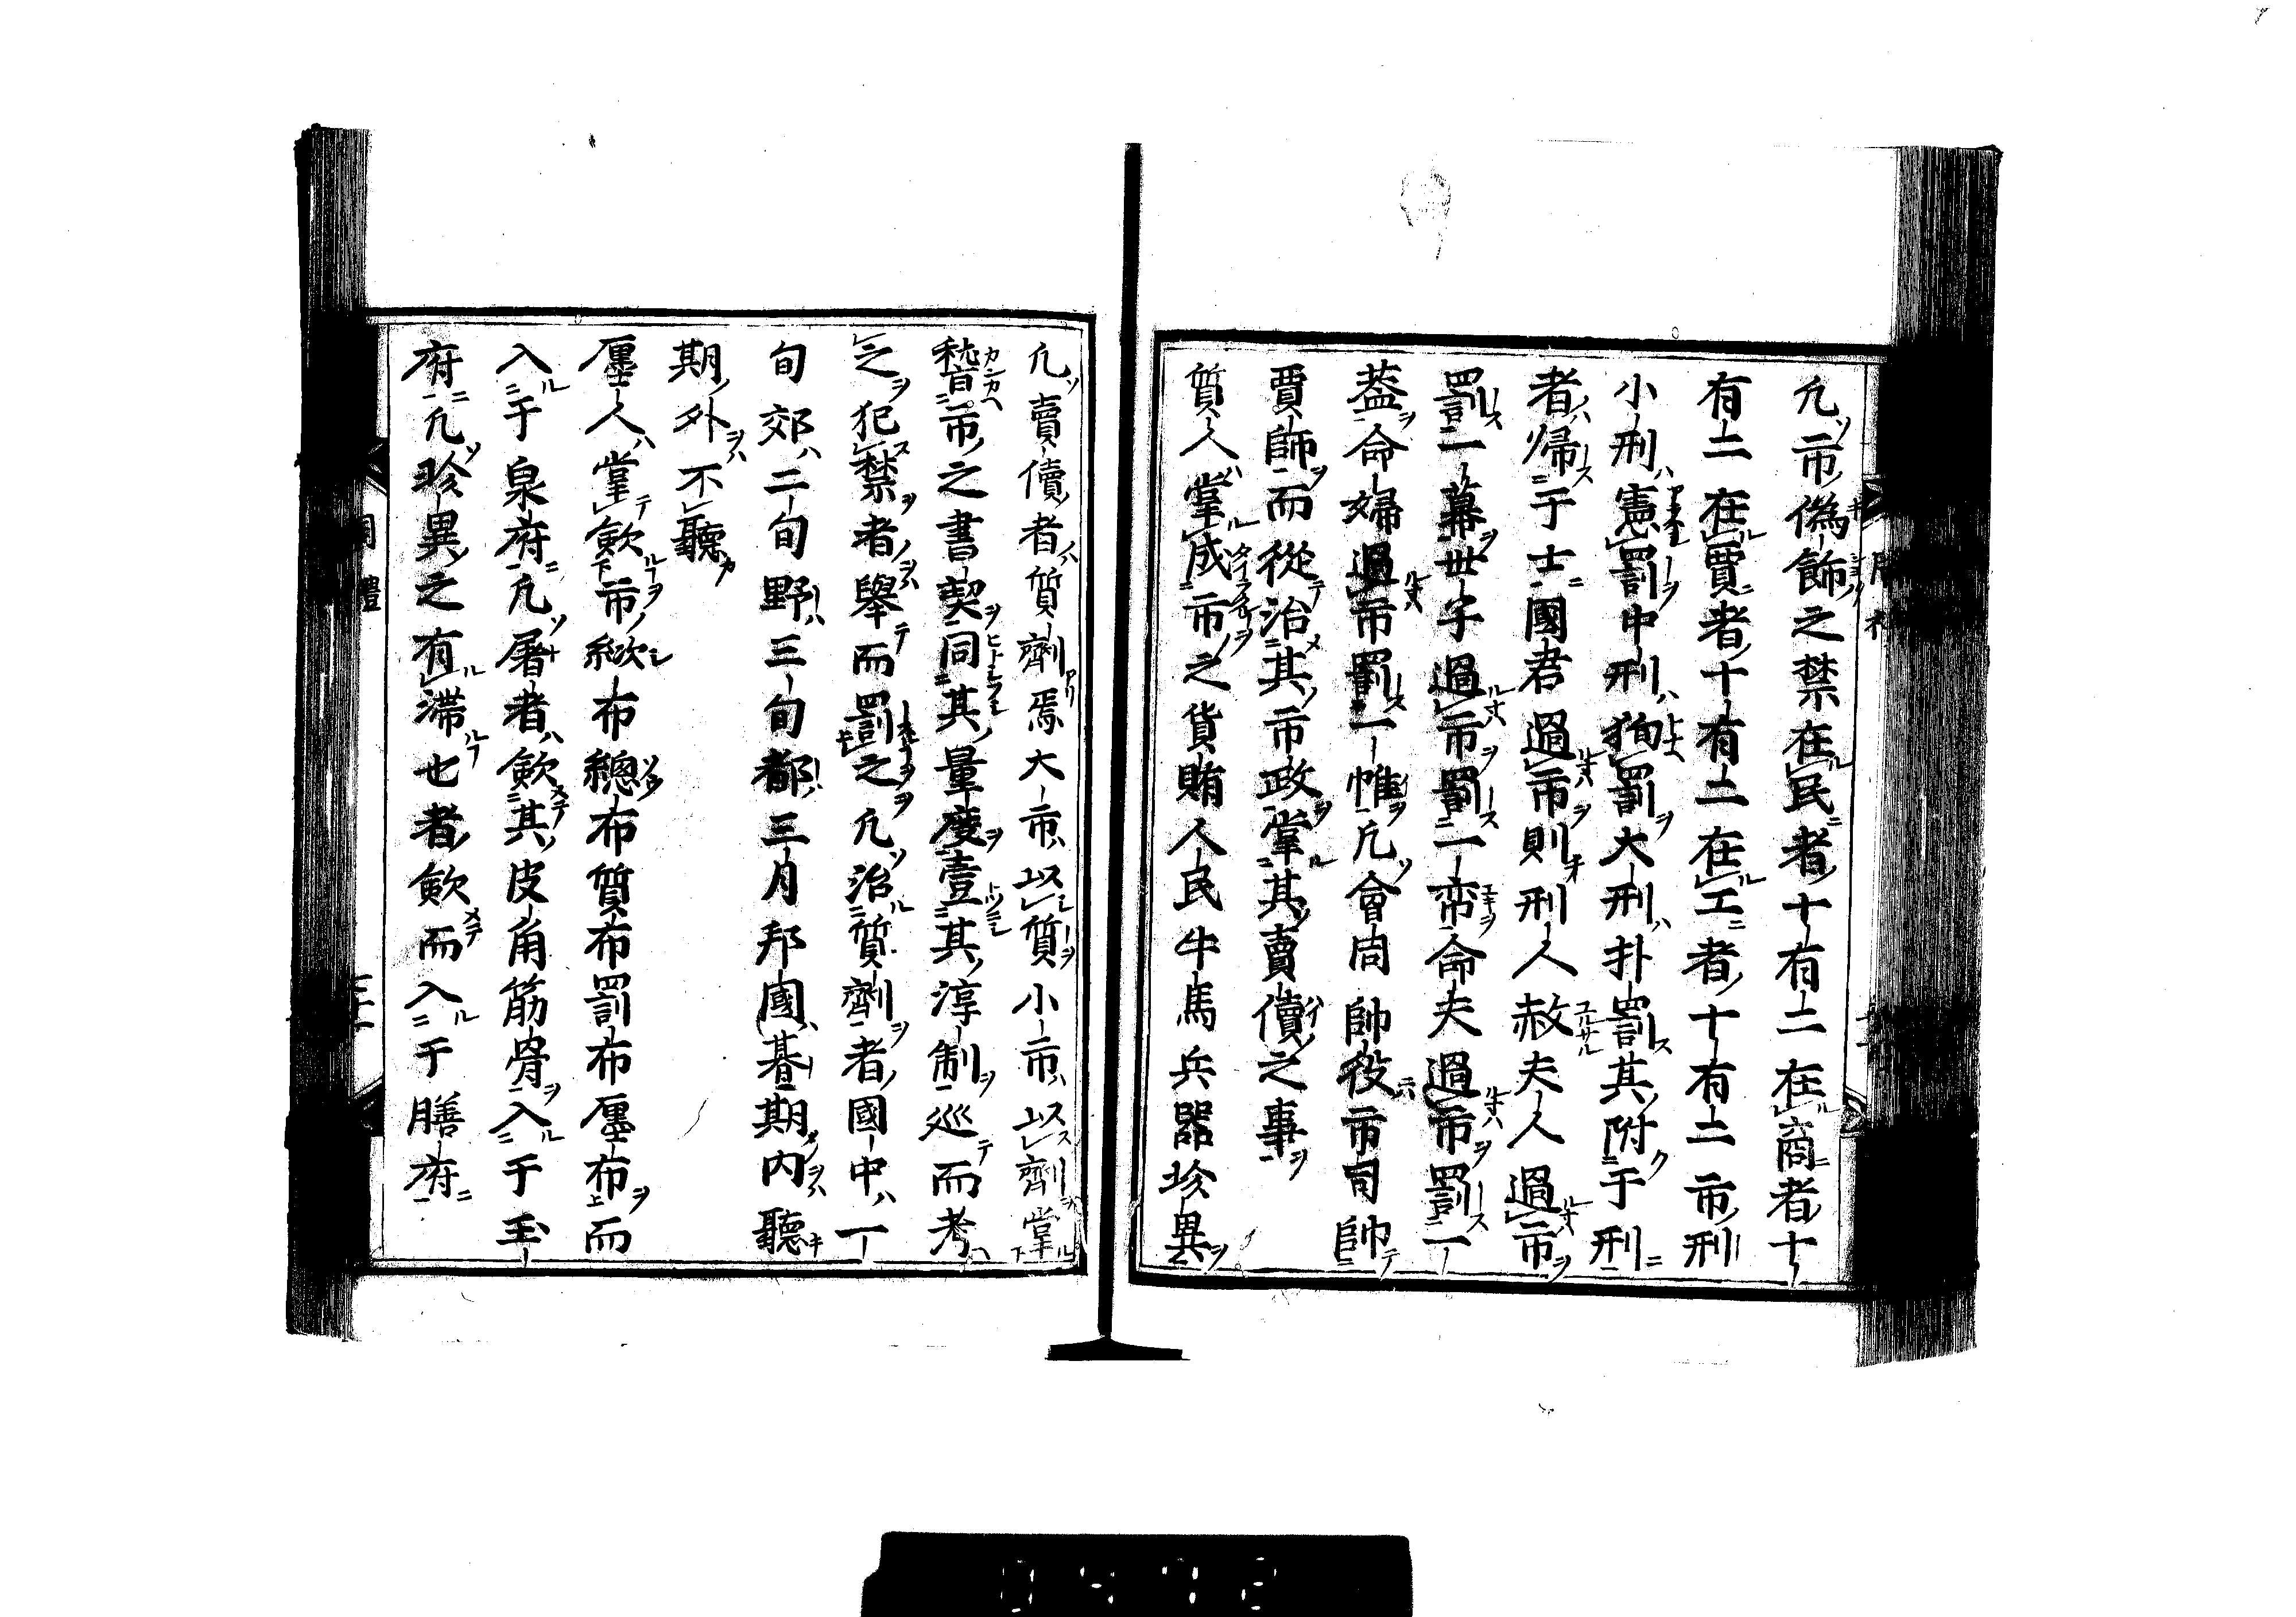 凢市偽飾之禁在民者十有二在商者十
有二在賈者十有二在工者十有二市刑
小刑憲罰中刑徇罰大刑扑罰其附于刑
者帰于士國君過市則刑人赦夫人過市
罰一幕丗子過市罰一帟命夫過市罰一
葢命婦過市罰一帷凢會同帥役市司帥
賈師而從治其市政掌其賣儥之事
質人掌成市之貨賄人民牛馬兵器珍異
凢賣儥者質劑焉大市以質小市以劑掌
稽市之書契同其量度壹其淳制巡而考
之犯禁者舉而罰之凢治質劑者國中一
旬郊二旬野三旬都三月邦國朞期内聽
期外不聽
廛人掌斂市絘布總布質布罰布廛布而
入于泉府凢屠者斂其皮角筋骨入于玉
府凢珍異之有滞也者斂而入于膳府